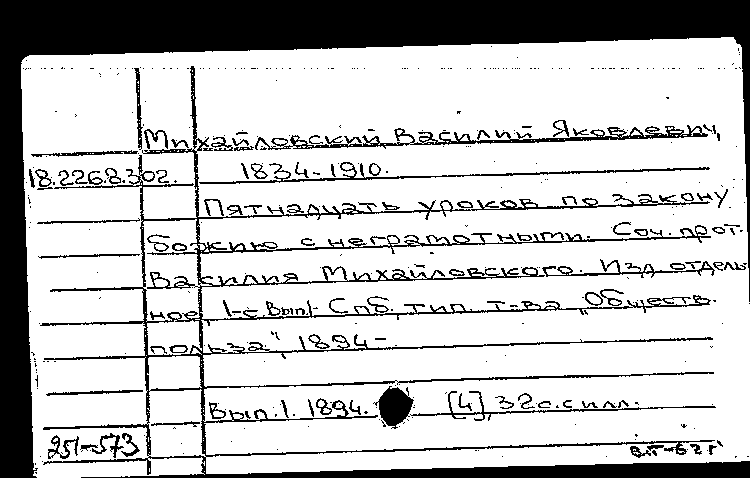 Михайловский, Василий Яковлевич,
18.226.8.302. 1834-1910.
Пятнадцать уроков по закону
божию с неграмотными. Соч. прот.
Василия Михайловского. Изд. отдель-
ное, 1-е Вып.1- Спб, тип. т-ва „Обществ.
польза", 1894-
Вып.1. 1894. [4], 32 с. с илл.
251-573